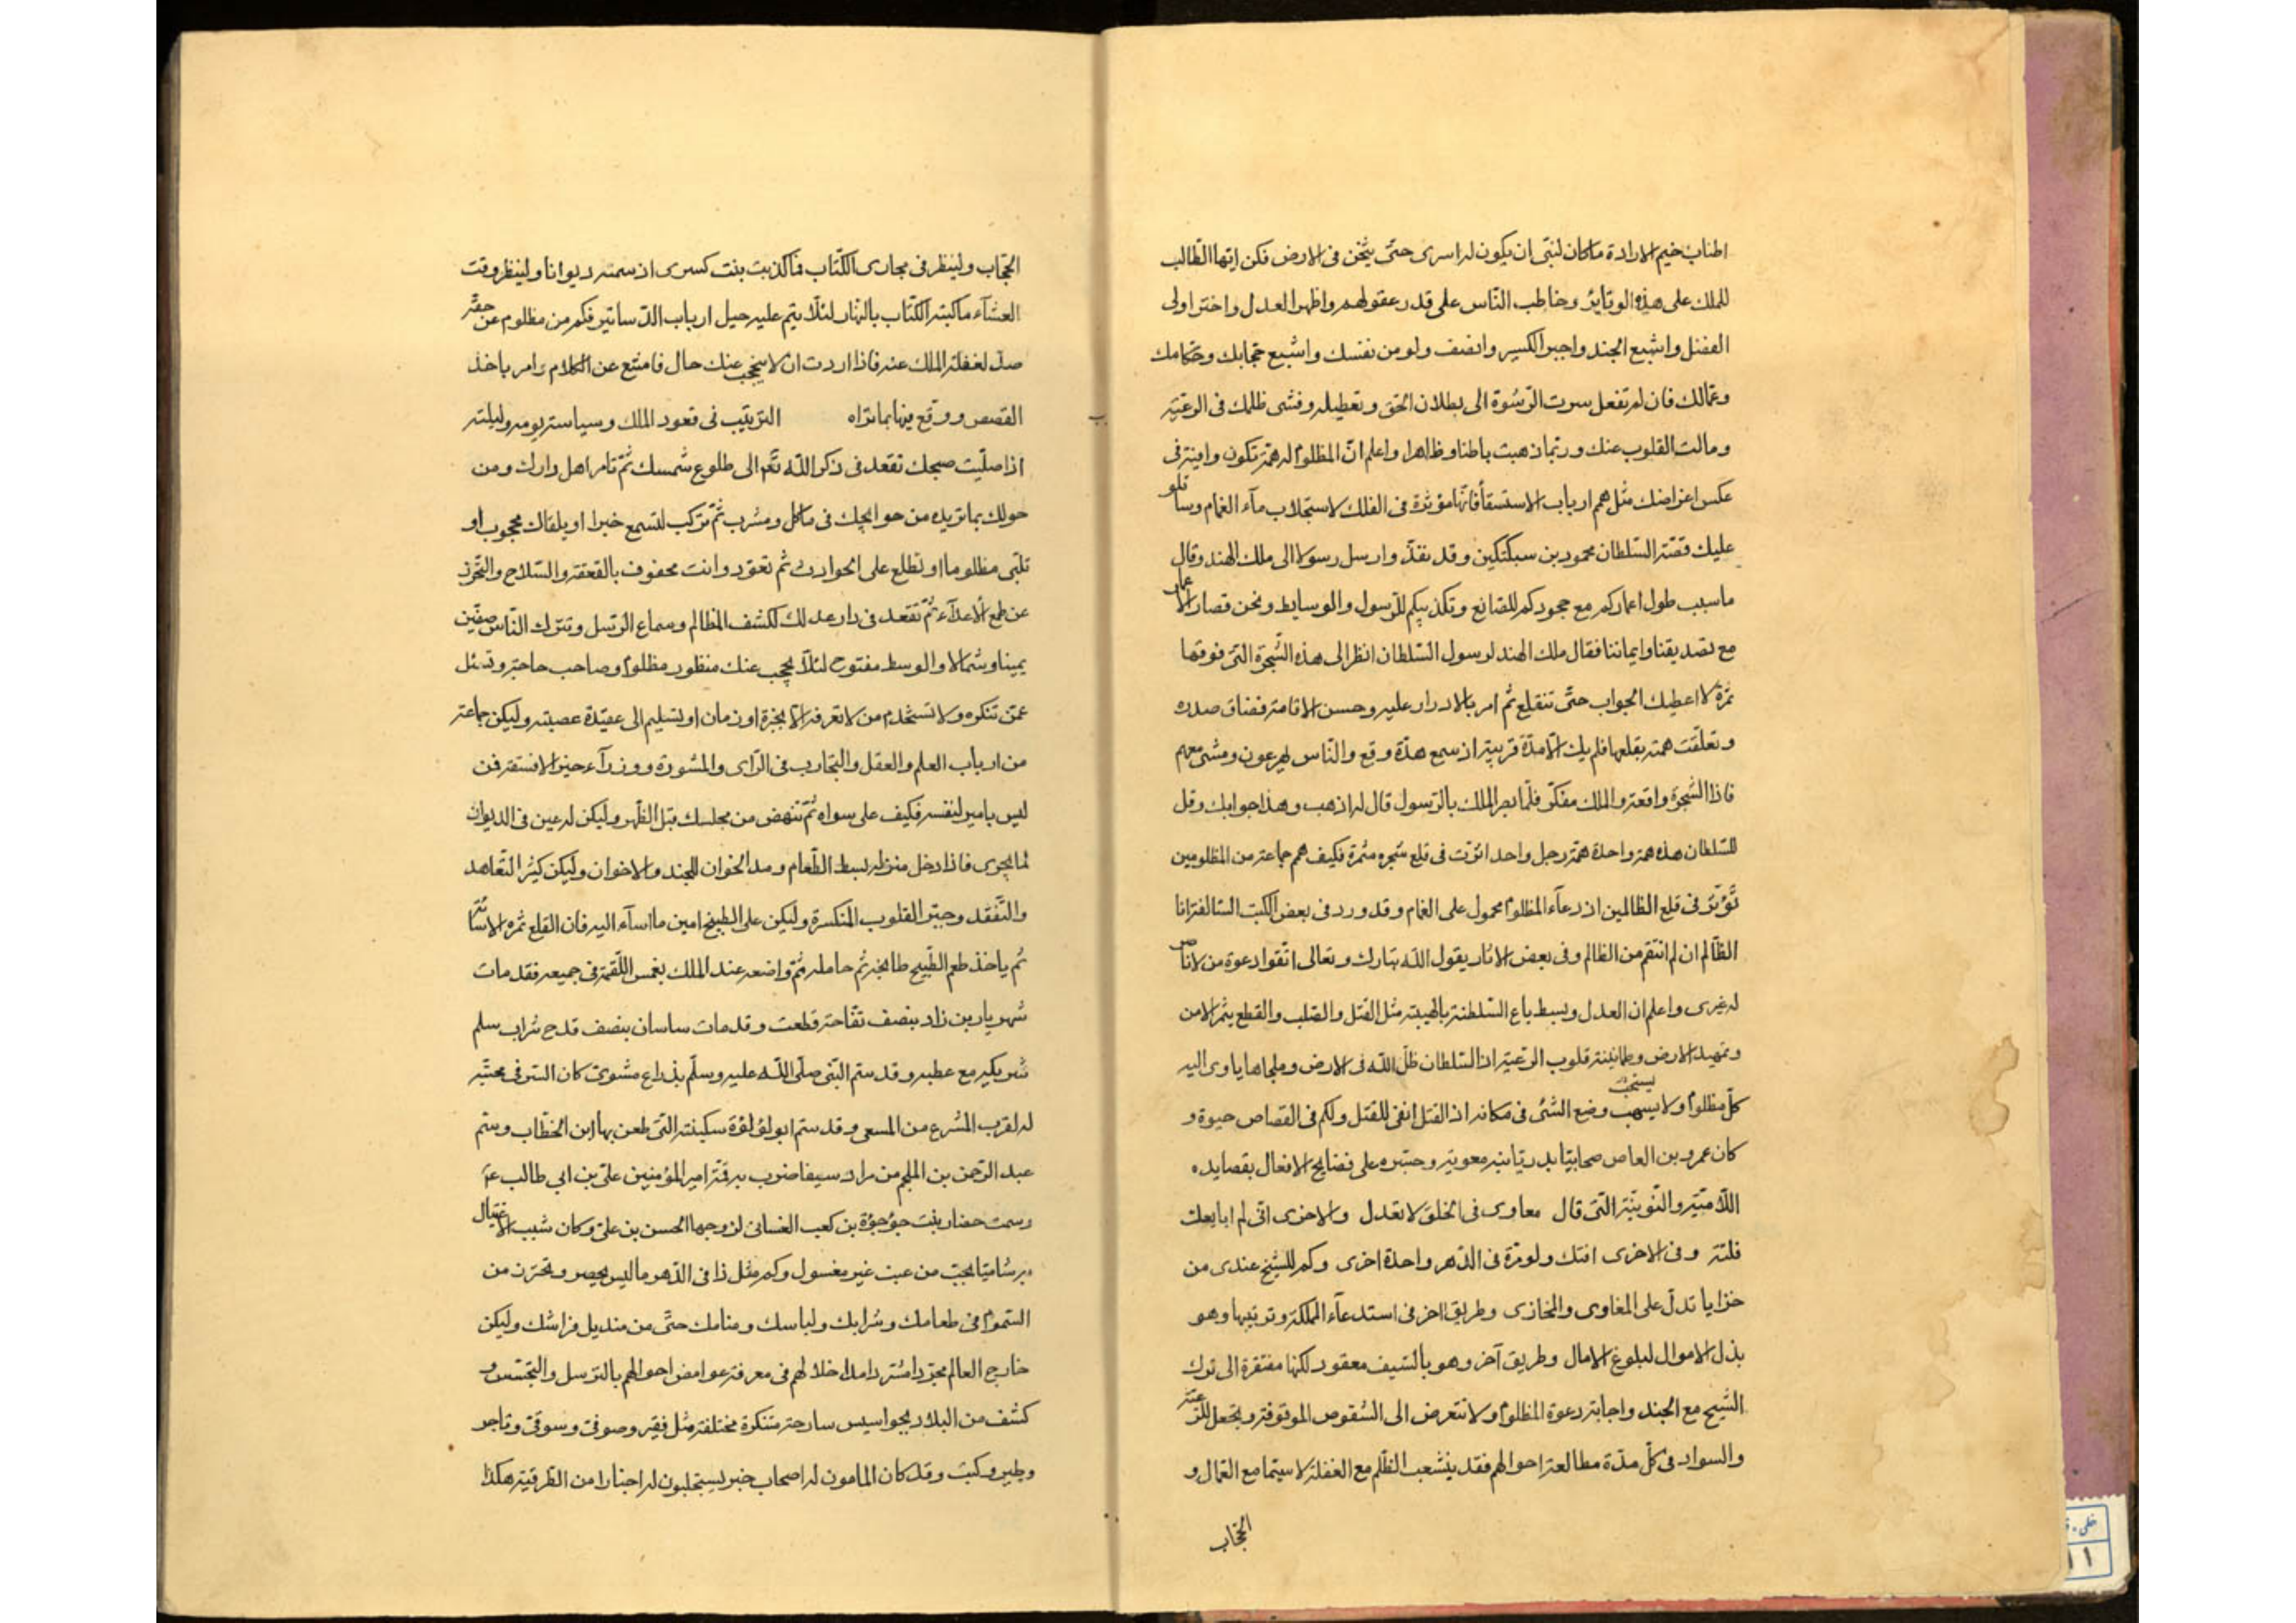 اطناب خيم الارادة ماكان لنبى ان يكون له اسرى حتى يثخن فى الارض فكن ايها الطالب
للملك على هذه الوتاير وخاطب الناس على قدر عقولهم واظهر العدل واختر اولى
الفضل واشبع الجند واجبر الكسير وانصف ولو من نفسك واشبع حجابك وحكامك
وعمالك فان لم تفعل سرت الرشوة الى بطلان الحق وتعطيله وفشى ظلمك فى الرعية
ومالت القلوب عنك وربما ذهبت باطنا وظاهرا واعلم ان المظلوم له همة تكون وافية فى
عكس اغراضك مثل همم ارباب الاستسقا فانها مؤثرة فى الفلك لاستجلاب مآء الغمام وساتلو
عليك قصة السلطان محمود بن سبكتكين وقد نفذ وارسل رسولا الى ملك الهند وقال
ماسبب طول اعماركم مع جحودكم للصانع وتكذيبكم للرسول والوسايط ونحن قصار الاعمار
مع تصديقنا وايماننا فقال ملك الهند لرسول السلطان انظر الى هذه الشجرة التى فوقها
ثمرة لا اعطيك الجواب حتى تنقلع ثم امر بالادرار عليه وحسن الاقامة فضاق صدره
وتعلقت همته بقلعها فلم يك الا مدة قريبة اذ سمع هدة وقع والناس يهرعون ومشى معهم
فاذا الشجرة واقعة والملك مفكر فلما بصر الملك بالرسول قال له اذهب وهذا جوابك وقل
للسلطان هذه همة واحدة همة رجل واحد اثرت فى قلع شجره مثمرة فكيف همم جماعة من المظلومين
تؤثر فى قلع الظالمين اذ دعآء المظلوم محمول على الغمام وقد ورد فى بعض الكتب السالفة انا
الظالم ان لم انتقم من الظالم وفى بعض الاثار يقول الله تبارك وتعالى اتقوا دعوة من لا ناصر
له غيرى واعلم ان العدل وبسط باع السلطنة بالهيبة مثل القتل والصلب والقطع يثمر الامن
وتمهيد الارض وطمانينة قلوب الرعية اذ السلطان ظل الله فى الارض وملجاها ياوى اليه
كل مظلوم ولا يستحب وضع الشئ فى مكانه اذ القتل انفى للقتل ولكم فى القصاص حيوة و
كان عمرو بن العاص صحابيا معوية على فضايح الافعال بقصايده
اللامية والنونية التى قال معاوى فى الخلق لا تعدل والاخرى انى لم ابايعك
فلتة وفى الاخرى افتك ولو مرة فى الدهر واحدة اخرى وكم للشيخ عندى من
خزايا تدل على المغاوى والمخازى وطريق اخر فى استدعآء المملكة وترتيبها وهو
بذل الاموال لبلوغ الامال وطريق آخر وهو بالسيف معقود لكنها مفتقرة الى ترك
الشح مع الجند واجابة دعوة المظلوم ولا تتعرض الى الشقوص الموقوفة ويجعل للرعية
والسواد فى كل مدة مطالعة احوالهم فقد ينشعب الظلم مع الغفلة لا سيما مع العمال و
الحجاب
الحجاب ولينظر فى مجارى الكتاب فما كذبت بنت كسرى اذ سمته ديوانا ولينظر وقت
العشآء ما كبته الكتاب بالنهار لئلا يتم عليه حيل ارباب الدساتير فكم من مظلوم عن حقه
صد لغفلة الملك عنه فاذا اردت ان لا يحجب عنك حال فامتنع عن الكلام وامر باخذ
القصص ووقع فيها بما تراه الترتيب فى قعود الملك وسياسته يومه وليلته
اذا صليت صبحك تقعد فى ذكر الله تعالى الى طلوع شمسك ثم تامر اهل دارك ومن
حولك بما تريده من حوائجك فى ماكل ومشرب ثم تركب لتسمع خبرا او يلقاك محجوب او
تلبى مظلوما او تطلع على الحوادث ثم تعود وانت محفوف بالقعقة والسلاح والتحرز
عن طمع الاعدآء ثم تقعد فى دار عدلك لكشف المظالم وسماع الرسل وتترك الناس صفين
يمينا وشمالا والوسط مفتوح لئلا يحجب عنك منظور مظلوم وصاحب حاجة وتسئل
عمن تنكره ولا تستخدم من لا تعرفه الا بخبرة او زمان او تسليم الى عقيدة عصبته وليكن جماعة
من ارباب العلم والعقل والتجارب فى الراى والمشورة ووزرآء فمن
ليس بامير لنفسه فكيف على سواه ثم تنهض من مجلسك قبل الظهر وليكن له عين فى الديوان
لما يجرى فاذا دخل منزله بسط الطعام ومد الخوان للجند والاخوان وليكن كثير التعاهد
والتفقد وجبر القلوب المنكسرة وليكن على الطبيخ امين ما اسآء اليه فان القلع ثمره الاسائة
ثم ياخذ طعم الطبيخ طابخه ثم حامله ثم واضعه عند الملك بغمس اللقمة فى جميعه فقد مات
شهريار بن زاد بنصف تفاحة قطعت وقد مات ساسان بنصف قدح شراب سلم
شربكير مع عطيه وقد ستم النبى صلى الله عليه وسلم بذراع مشوى كان السر فى محبته
له لقرب المشرع من المسعى وقد ستم ابو لؤلؤة سكينته التى طعن بها ابن الخطاب وستم
عبد الرحمن بن الملجم من مراد سيفا ضرب به قمة امير المؤمنين على بن ابي طالب ع
وسمت حضار بنت جؤجؤة بن كعب الغسانى لزوجها الحسن بن على وكان سبب الاغتيال
من عبت غير مغسول وكم مثل ذا فى الدهر ما ليس يحصر وتحرز من
السموم فى طعامك وشرابك ولباسك ومنامك حتى من منديل فراشك وليكن
خارج العالم فى معرفة غوامض احوالهم بالترسل والتجسس و
كشف من البلاد بجواسيس سارحة متنكرة مختلفة مثل فقير وصوفى وسوقى وتاجر
وطير وكتب وقد كان المامون له اصحاب خبر يستجلبون له اخبارا من الطرقية هكذا
خلى
١١